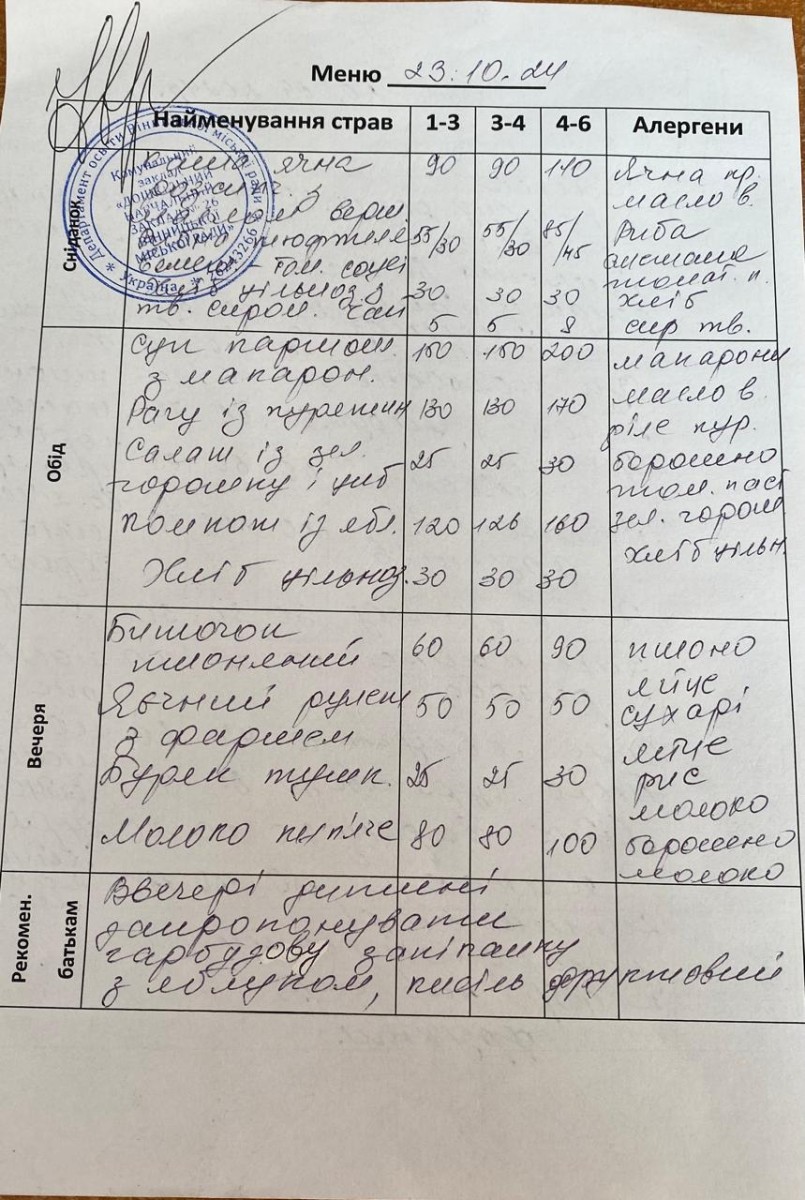 Меню 23.10.24
Найменування страв 1-3 3-4 4-6 Алергени
Сніданок
ячна 90 90 110 Ячна пр.
масло в.
верш.
55/30 55/30 85/45 Риба
том. соусі
томат. п.
хліб цільноз. з 30 30 30 хліб
тв. сиром. Чай 5 5 8 сир тв.
Департамент освіти Вінницької міської ради
Комунальний
заклад
«ДОШКІЛЬНИЙ
НАВЧАЛЬНИЙ
ЗАКЛАД № 26
ВІННИЦЬКОЇ
МІСЬКОЇ РАДИ»
* Україна *
Обід
Суп 150 150 200 макарони
з макарон. масло в.
Рагу із курятин 130 130 170 філе кур.
Салат із зел. 25 25 30 борошно
горошку і циб том. паст
компот із ябл. 120 126 160 зел. горош
Хліб цільноз. 30 30 30 хліб цільн.
Вечеря
Биточок
пшоняний 60 60 90 пшоно
яйце
Яєчний рулет 50 50 50 сухарі
з фаршем яйце
Буряк тушк. 25 25 30 рис
молоко
Молоко кип'яче 80 80 100 борошно
молоко
Рекомен.
батькам
Ввечері дитині
запропонувати
гарбузову запіканку
з яблуком, кисіль фруктовий